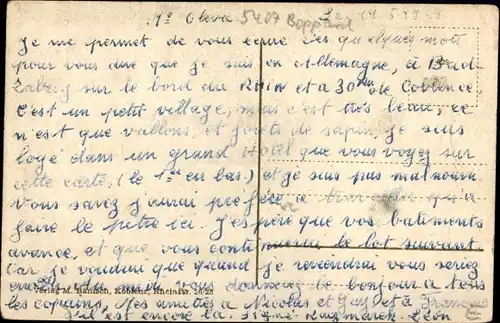 5407 Boppard
Je me permet de vous ecrire ces quelques mots
pour vous dire que je suis en Allemagne, à Bad-
Salzig sur le bord du Rhin et a 30 Km de Coblence
C'est un petit village, mais c'est très beau, ce
n'est que vallons, et forets de sapin, je suis
logé dans un grand Hotel que vous voyez sur
cette carte, (le 1er en bas) et je suis pas malheureux
Vous savez j'aurai préférer a travailler qu'a
faire le pitre ici. J'espère que vos batiments
avance, et que vous continuerai le lot suivant
Car je voudrai que quand je reviendrai vous seriez
encore Vous donnerez le bonjour a tous
Verlag M. Bahnsen, Koblenz, Rheinstr.
les copains, Mes amitiés a Nicolas et a François
s'il est encore la. Signé Léon